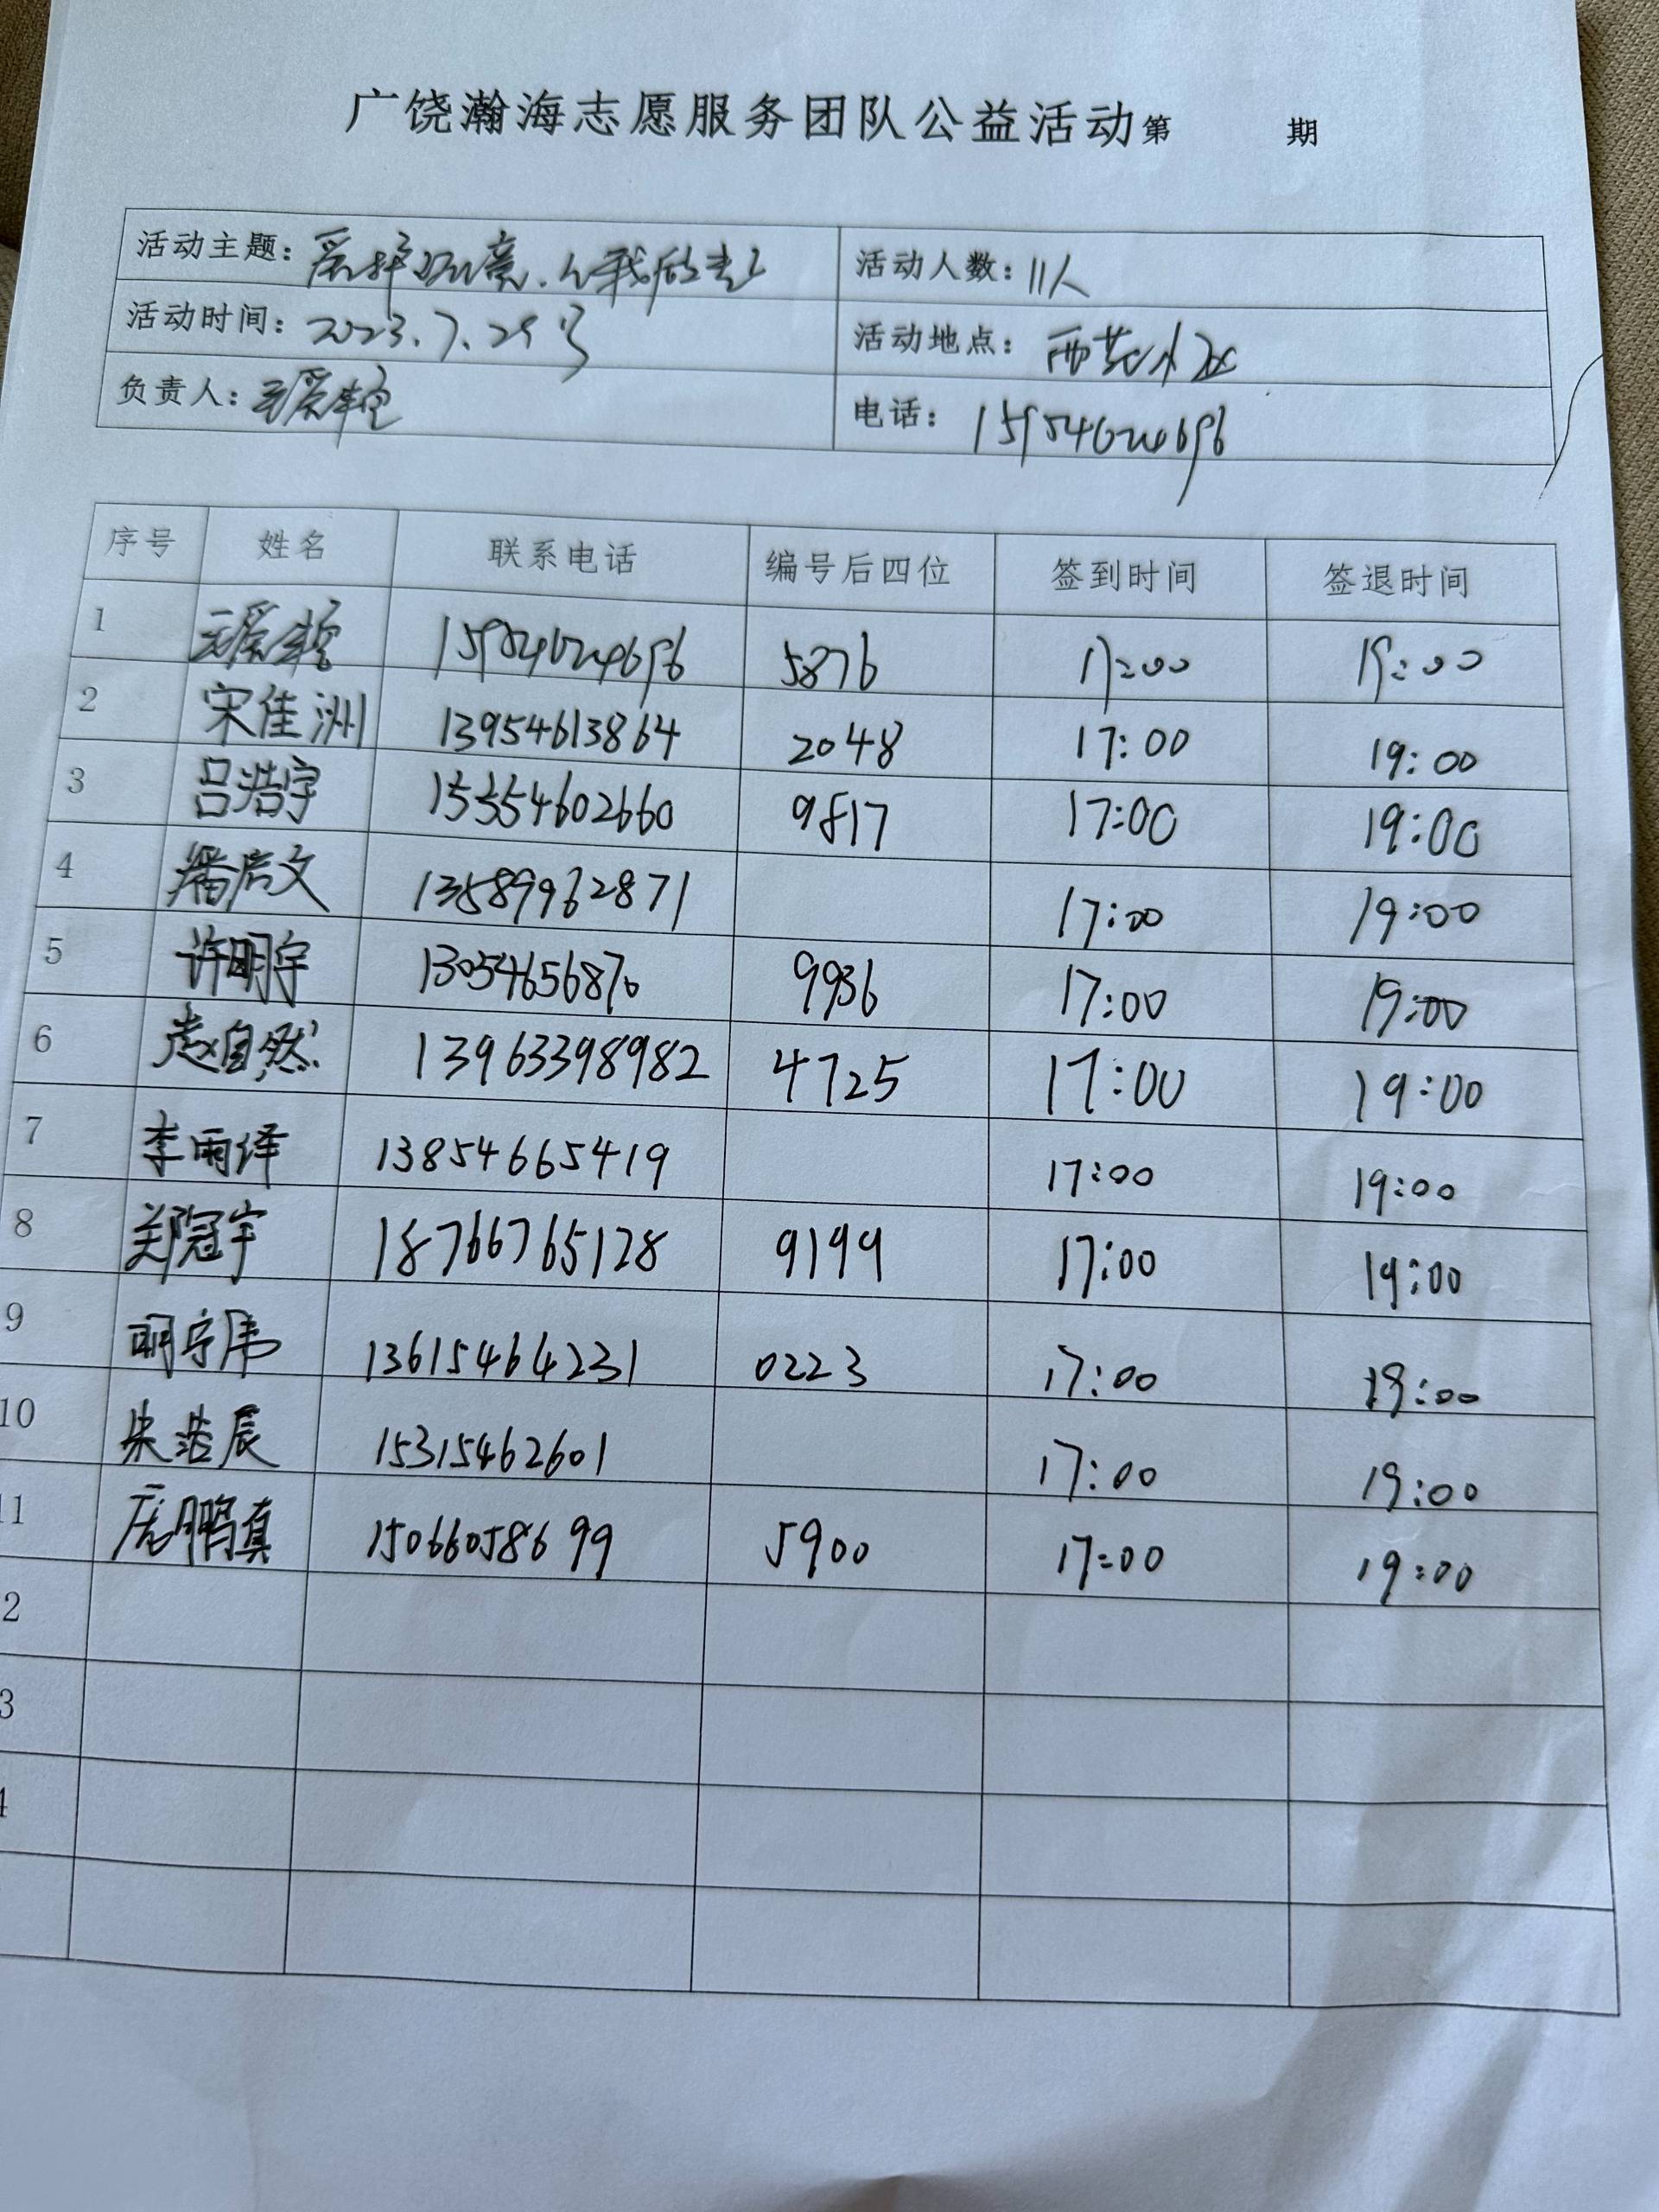 广饶瀚海志愿服务团队公益活动第 期
活动主题：爱护环境、从我做起 活动人数：11人
活动时间：2023.7.29号 活动地点：西苑小区
负责人： 电话：
序号 姓名 联系电话 编号后四位 签到时间 签退时间
1 5876 17:00 19:00
2 宋佳洲 13954613864 2048 17:00 19:00
3 吕浩宇 15354602660 9817 17:00 19:00
4 潘启文 13589962871 17:00 19:00
5 许明宇 13054656870 9936 17:00 19:00
6 赵自然 13963398982 4725 17:00 19:00
7 李雨泽 13854665419 17:00 19:00
8 郑冠宇 18766765128 9199 17:00 19:00
9 明宁伟 13615464231 0223 17:00 19:00
10 朱浩辰 15315462601 17:00 19:00
11 庞鹏真 15066058699 5900 17:00 19:00
2
3
4